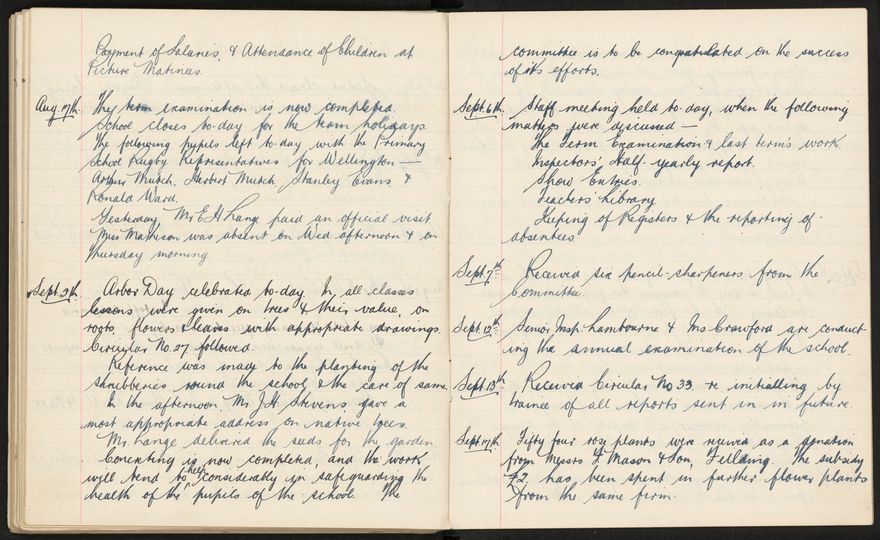 Payment of Salaries, & Attendance of Children at
Picture Matinees.
Aug. 17th. The term examination is now completed.
School closes to-day for the term holidays.
The following pupils left to-day with the Primary
School Rugby Representatives for Wellington —
Arthur Mutch, Herbert Mutch, Stanley Evans &
Ronald Ward.
Yesterday, Mr E H Lange paid an official visit
Miss Matheson was absent on Wed afternoon & on
Thursday morning
Sept. 3th. Arbor Day celebrated to-day. In all classes
lessons were given on trees & their value, on
roots, flowers & leaves with appropriate drawings.
Circular No. 27 followed.
Reference was made to the planting of the
shrubberies round the school, & the care of same.
In the afternoon, Mr J. H. Stevens gave a
most appropriate address on native trees.
Mr Lange delivered the seeds for the garden.
Concreting is now completed, and the work
will tend to help considerably in safeguarding the
health of the pupils of the school. The
committee is to be congratulated on the success
of its efforts.
Sept. 6th. Staff meeting held to-day, when the following
matters were discussed —
The Term Examination & last term's work
Inspectors' half-yearly report.
Show Entries.
Teachers' Library
Keeping of Registers & the reporting of
absentees
Sept. 7th. Received six pencil-sharpeners from the
Committee.
Sept. 12th. Senior Insp. Lambourne & Mr Crawford are conduct-
ing the annual examination of the school.
Sept. 13th. Received Circular No 33 re initialling by
trainee of all reports sent in in future.
Sept. 17th. Fifty four rose plants were received as a donation
from Messrs F Mason & Son, Feilding. The subsidy
£2 has been spent in further flower plants
from the same firm.